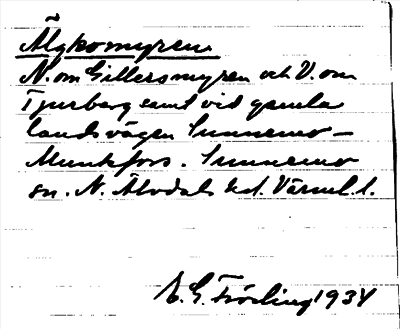 Älgkomyren
N. om Gillersmyren och V. om
Tjurberg samt vid gamla
landsvägen Sunnemo –
Munkfors. Sunnemo
sn. N. Älvdals hd. Värml. l.
E. G. Fröling 1934